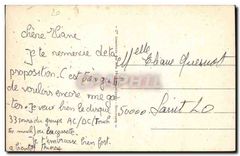 Chère Liane
Je te remercie de ta
proposition. C'est très gentil
de vouloir encore me
ter. Je veux bien le disque
33 tours du groupe AC/DC (Touch
too much) ou la cassette.
Je t'embrasse bien fort.
a bientôt
Melle
50000 Saint Lo